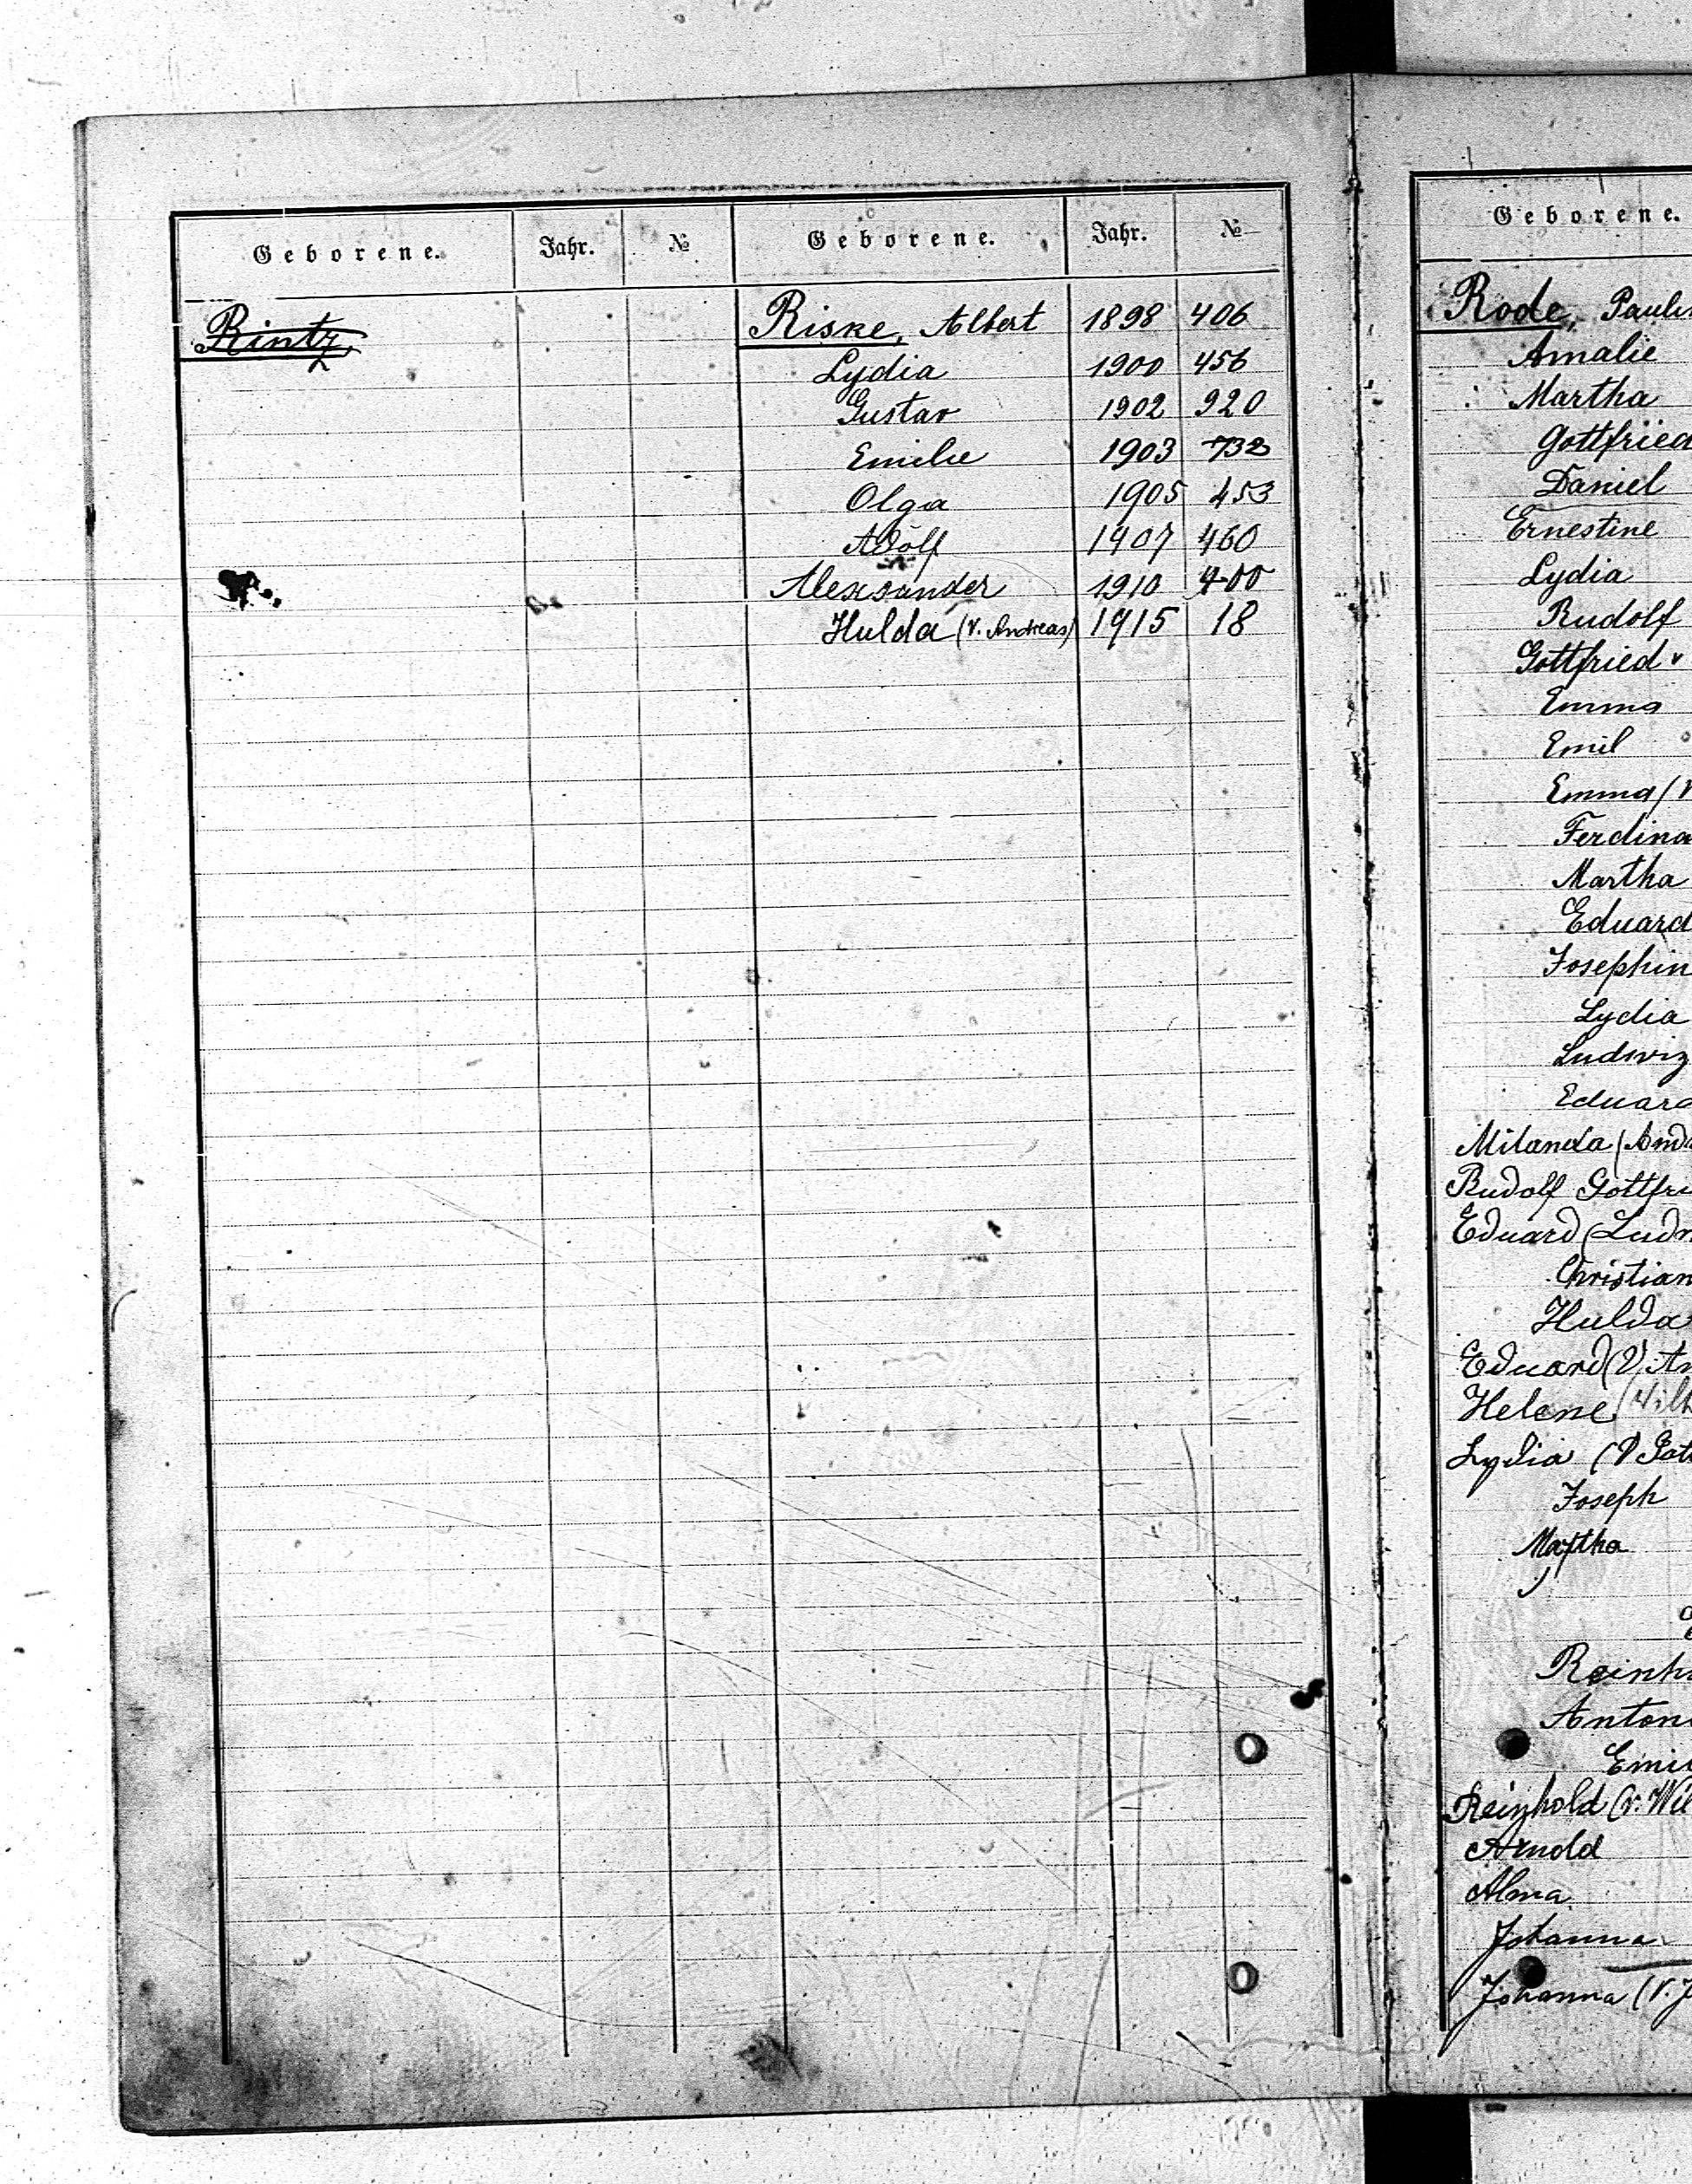 Geborene. Jahr. № Geborene. Jahr. №
Rintz,
Riske, Albert 1898 406
Lydia 1900 456
Gustav 1902 920
Emilie 1903 732
Olga 1905 453
Adolf 1907 460
Alexsander 1910 400
Hulda (v. Andreas) 1915 18
Geborene.
Rode, Paulin
Amalie
Martha
Gottfried
Daniel
Ernestine
Lydia
Rudolf
Gottfried v
Emma
Emil
Emma (V
Ferdina
Martha
Eduard
Josephin
Lydia
Ludwig
Eduard
Milanda (And
Rudolf Gottfri
Eduard (Ludw
Christian
Hulda
Eduard (V. An
Helene (Wilh
Lydia (V Got
Joseph
Martha
Reinh
Anton
Emil
Reinhold (v. Wil
Arnold
Alma
Johanna
Johanna (V. J